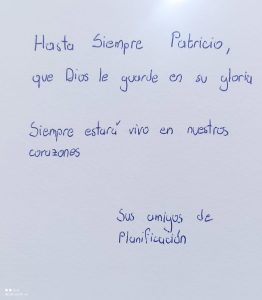 Hasta Siempre Patricio,
que Dios le guarde en su gloria
Siempre estará vivo en nuestros
corazones
Sus amigos de
Planificación